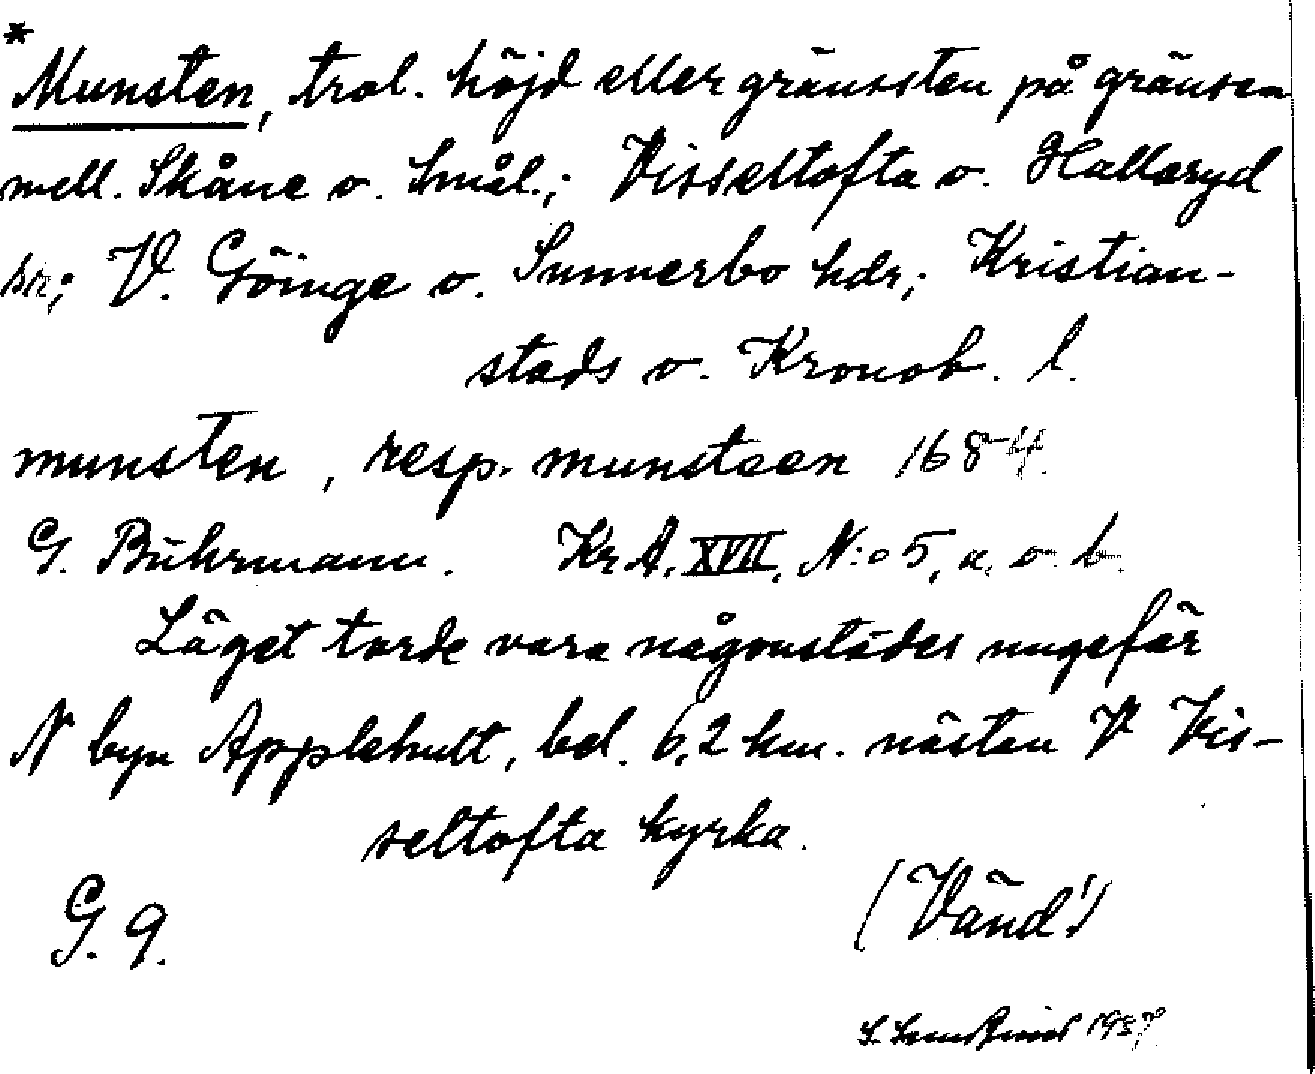 *
Munsten, trol. höjd eller gränssten på gränsen
mell. Skåne o. Smål.; Visseltofta o. Hallaryd
snr; V. Göinge o. Sunnerbo hdr; Kristian-
stads o. Kronob. l.
munsten, resp. munsteen 1684.
G. Buhrmann. Kr.A. XVII, N:o 5, a. o. b.
Läget torde vara någonstädes ungefär
N byn Applehult, bel. 6,2 km. nästan V Vis-
seltofta kyrka.
G. 9. (Vänd!)
S. 1937